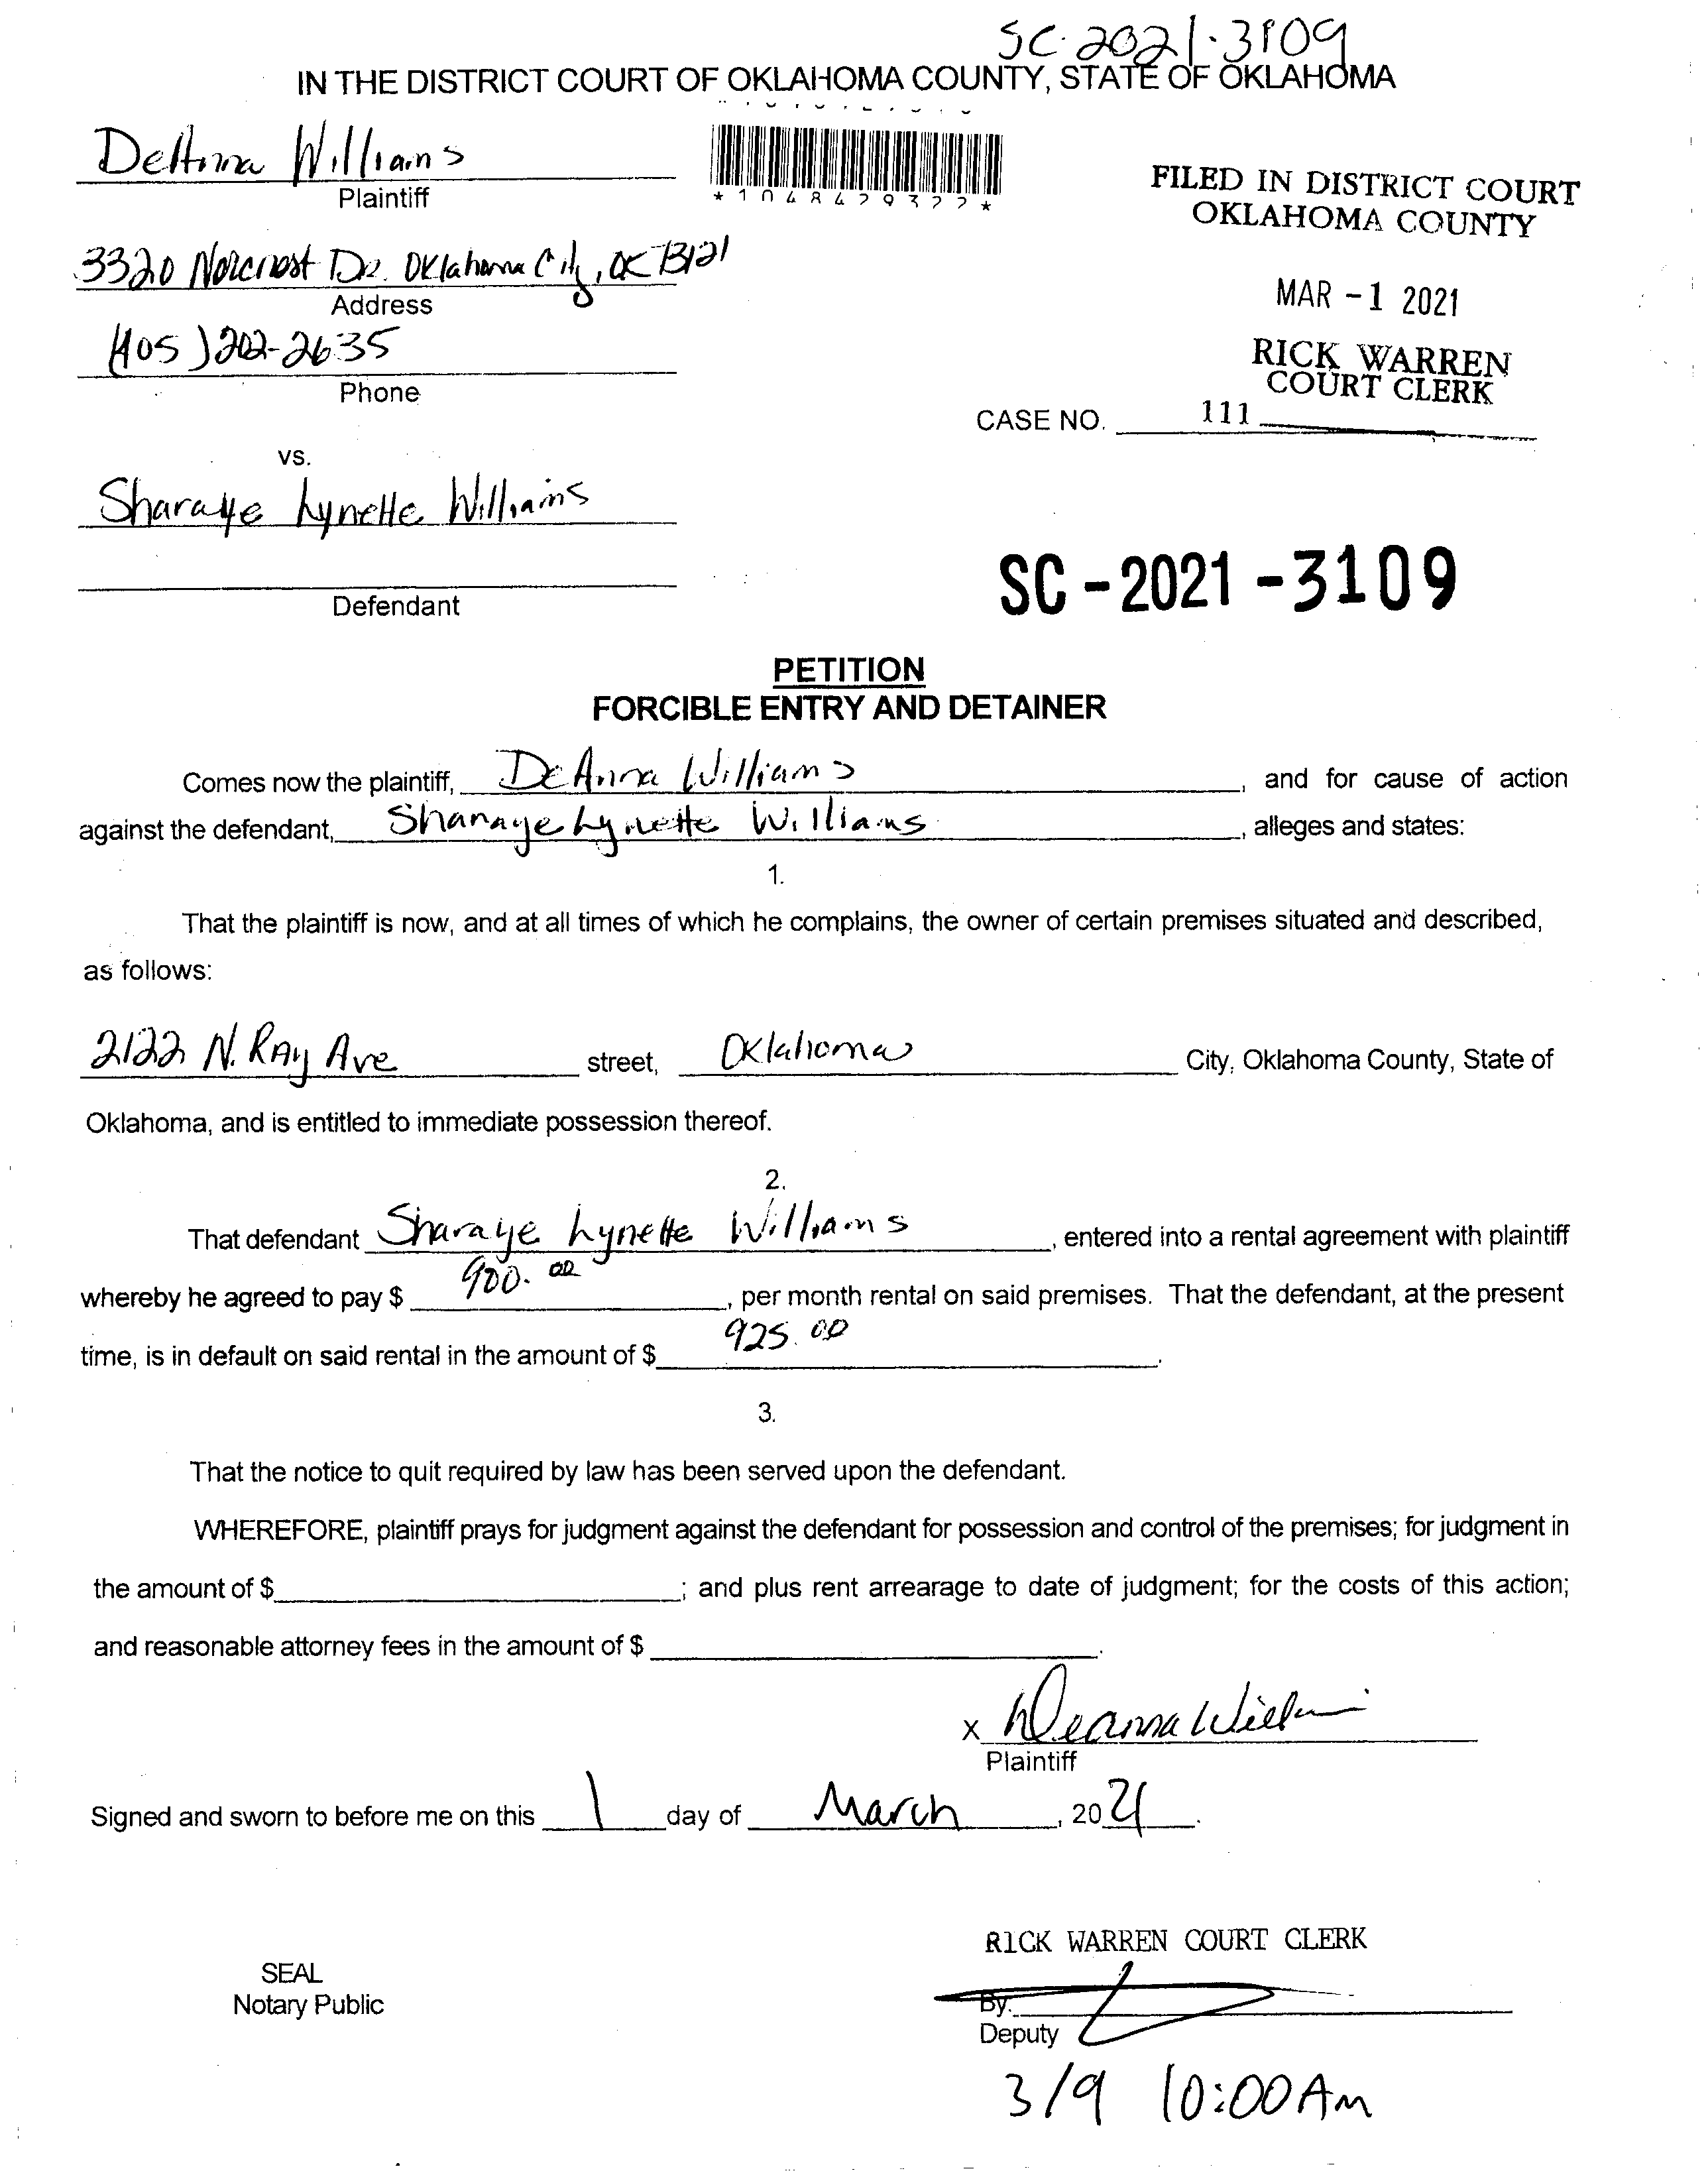 SC-2021-3109
IN THE DISTRICT COURT OF OKLAHOMA COUNTY, STATE OF OKLAHOMA
DeAnna Williams
Plaintiff
*1048429322*
FILED IN DISTRICT COURT
OKLAHOMA COUNTY
3320 Norcrest Dr. Oklahoma City, OK 73121
Address
MAR -1 2021
(405) 202-2635
Phone
RICK WARREN
COURT CLERK
CASE NO. 111
vs.
Sharaye Lynette Williams
Defendant
SC-2021-3109
PETITION
FORCIBLE ENTRY AND DETAINER
Comes now the plaintiff, DeAnna Williams, and for cause of action
against the defendant, Sharaye Lynette Williams, alleges and states:
1.
That the plaintiff is now, and at all times of which he complains, the owner of certain premises situated and described,
as follows:
2122 N. Ray Ave street, Oklahoma City, Oklahoma County, State of
Oklahoma, and is entitled to immediate possession thereof.
2.
That defendant Sharaye Lynette Williams, entered into a rental agreement with plaintiff
whereby he agreed to pay $ 900.00, per month rental on said premises. That the defendant, at the present
time, is in default on said rental in the amount of $ 925.00.
3.
That the notice to quit required by law has been served upon the defendant.
WHEREFORE, plaintiff prays for judgment against the defendant for possession and control of the premises; for judgment in
the amount of $ ; and plus rent arrearage to date of judgment; for the costs of this action;
and reasonable attorney fees in the amount of $ .
x Deanna Williams
Plaintiff
Signed and sworn to before me on this 1 day of March, 2021.
RICK WARREN COURT CLERK
SEAL
Notary Public
By:
Deputy
3/9 10:00 Am